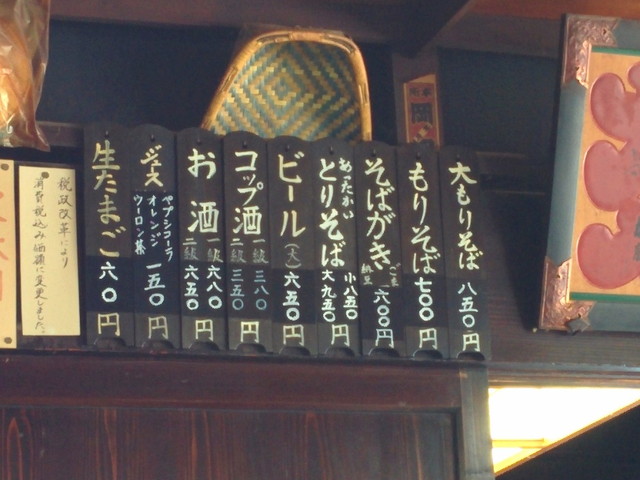 大もりそば 八五〇円
もりそば 七〇〇円
そばがき ごま 納豆 一六〇〇円
あたたかい
とりそば 小八五〇 大九五〇円
ビール(大) 六五〇円
コップ酒 一級 三八〇 二級 三五〇円
お酒 一級 六八〇 二級 六五〇円
ジュース ペプシコーラ オレンジ ウーロン茶 一五〇円
生たまご 六〇円
税政改革により
消費税込み価額に変更しました。